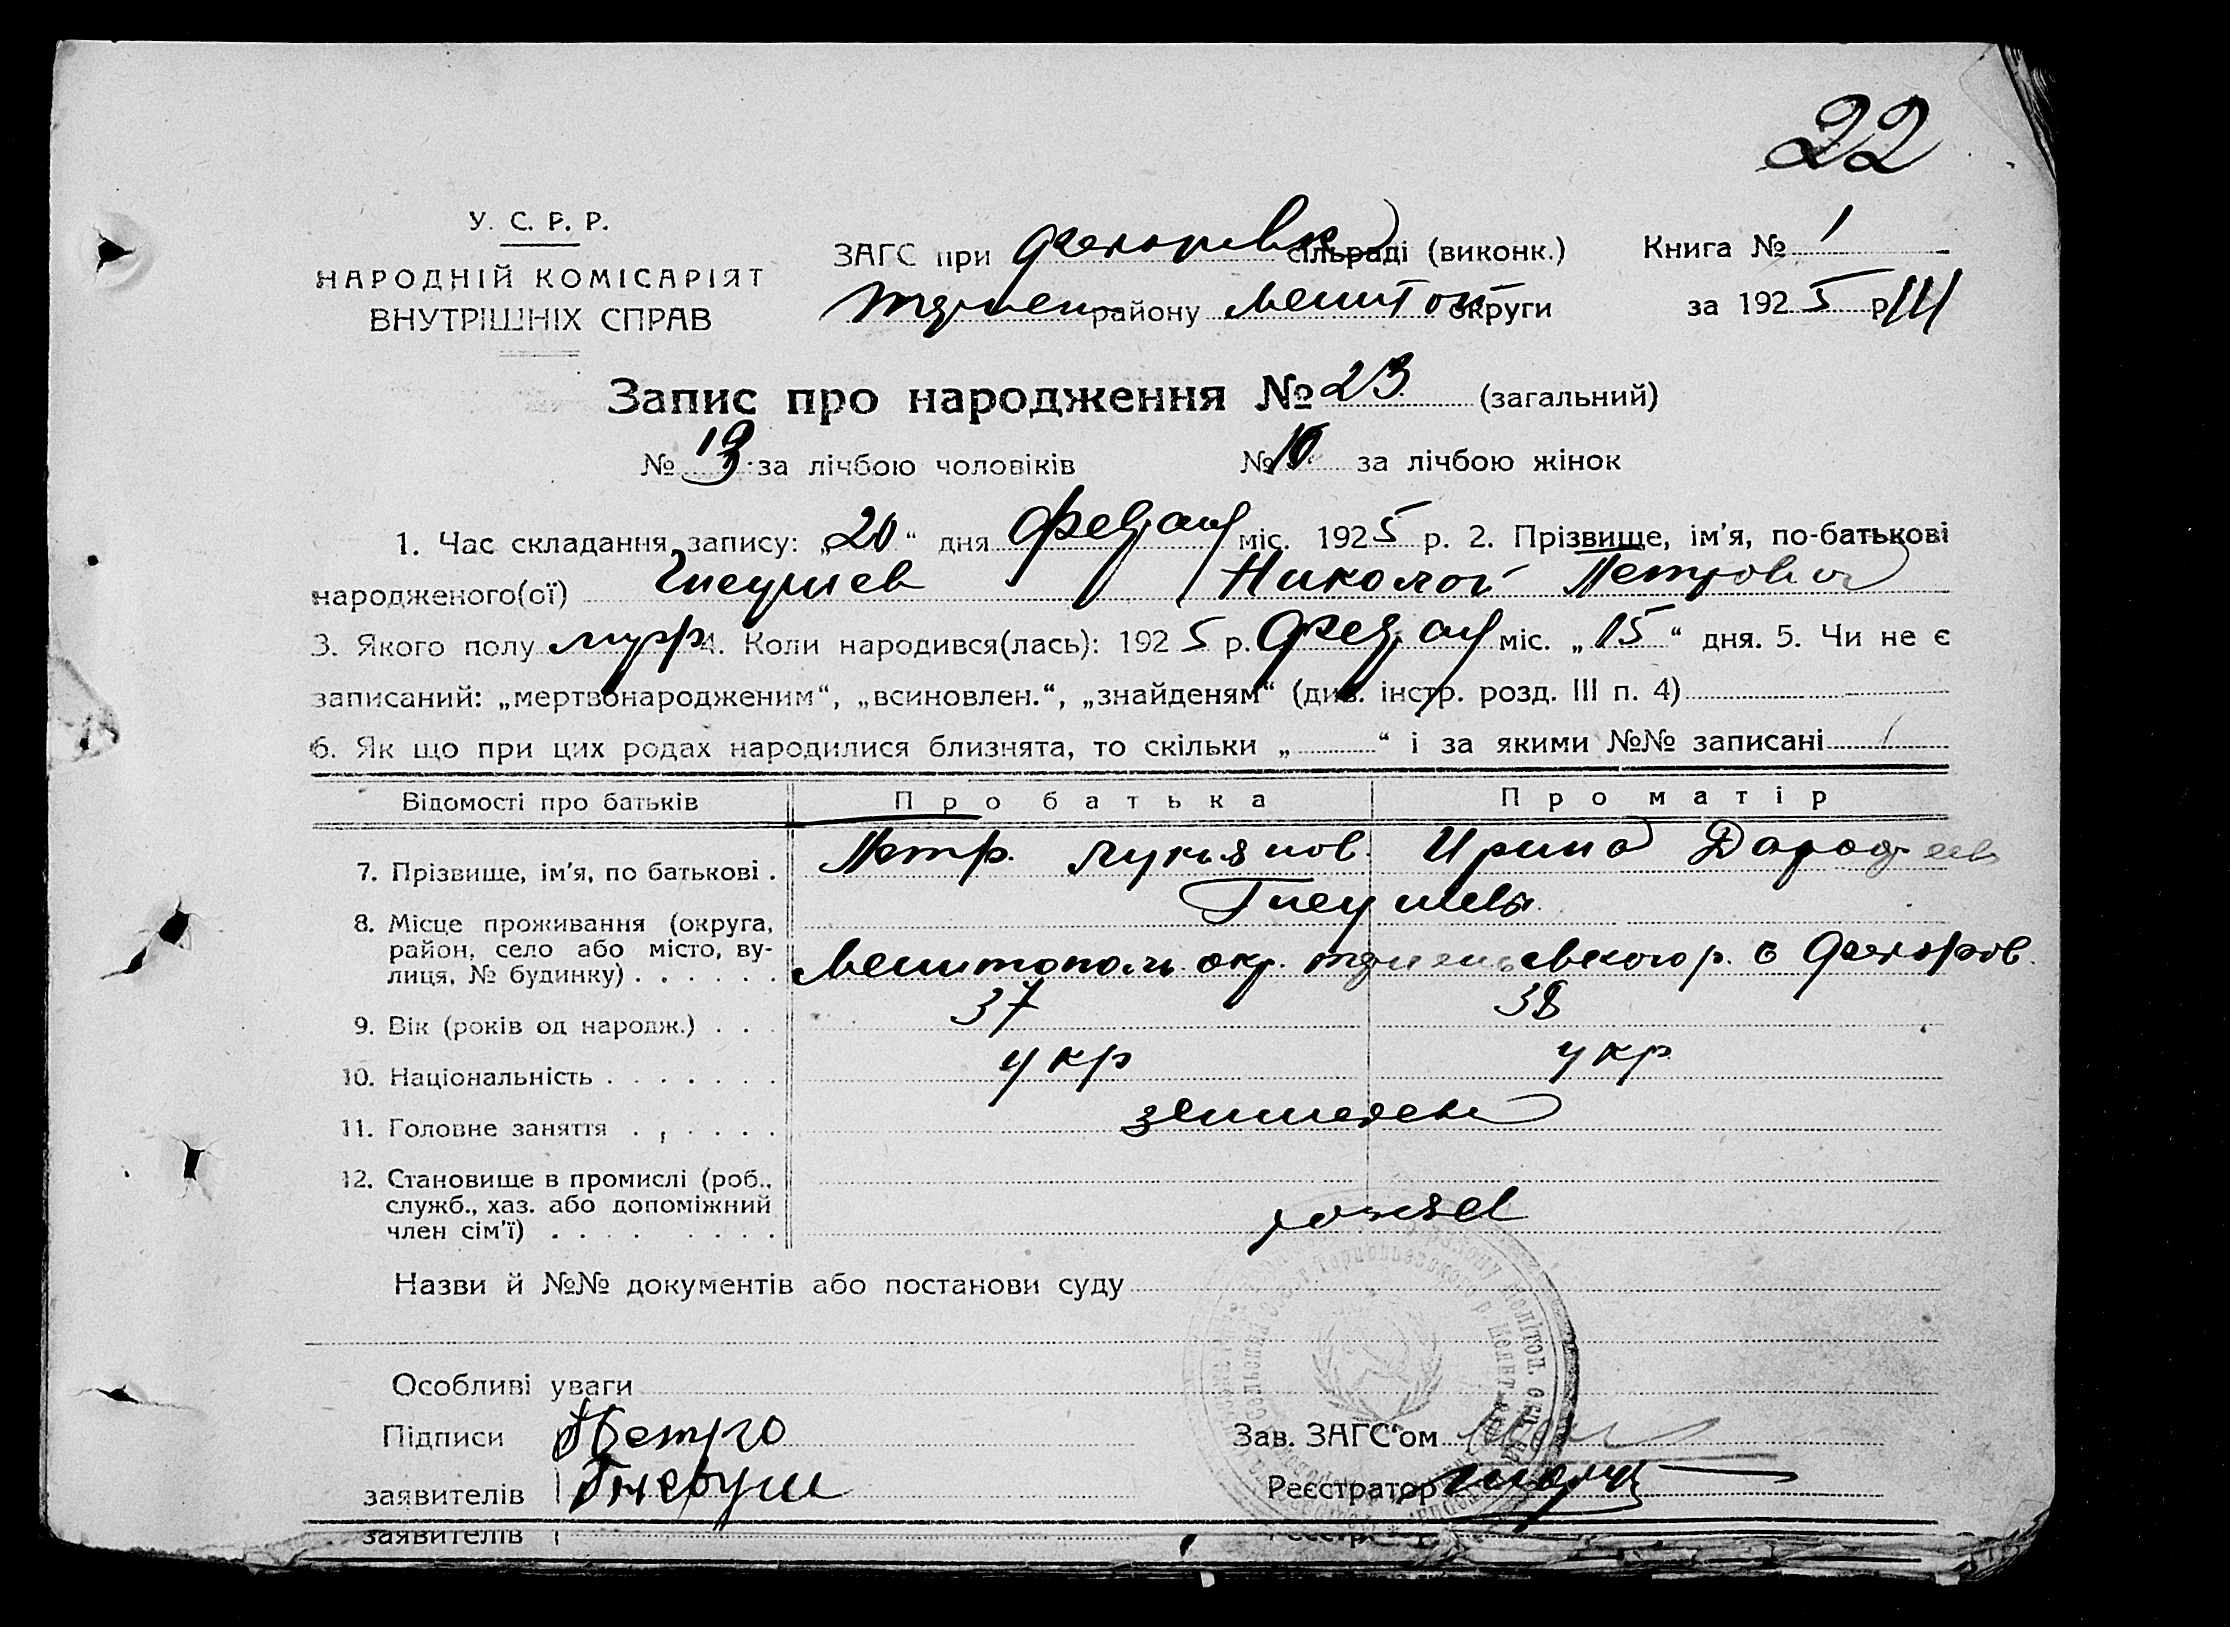 22
У. С. Р. Р.
НАРОДНІЙ КОМІСАРІЯТ
ВНУТРІШНІХ СПРАВ
ЗАГС при сільраді (виконк.) Книга № 1
району Мелит ок округи за 1925 р. III
Запис про народження № 23 (загальний)
№ 13 за лічбою чоловіків № 10 за лічбою жінок
1. Час складання запису: „20“ дня міс. 1925 р. 2. Прізвище, ім'я, по-батькові
народженого(ої) Гнеушев Николай Петрович
3. Якого полу 4. Коли народився(лась): 1925 р. міс. „15“ дня. 5. Чи не є
записаний: „мертвонародженим“, „всиновлен.“, „знайденям“ (див. інстр. розд. III п. 4)
6. Як що при цих родах народилися близнята, то скільки „ “ і за якими №№ записані
Відомості про батьків Про батька Про матір
7. Прізвище, ім'я, по батькові . Петр. Лукьянов. Ирина
Гнеушевы
8. Місце проживання (округа,
район, село або місто, ву-
лиця, № будинку) . . . . . . Мелитополь окр. р. с
9. Вік (років од народж.) . . . 37 38
10. Національність . . . . . . . укр укр
11. Головне заняття . , . . . .
12. Становище в промислі (роб.,
служб., хаз. або допоміжний
член сім'ї) . . . . . . . . хозяев
Назви й №№ документів або постанови суду
Особливі уваги
Підписи Петро Зав. ЗАГС'ом
заявителів Гнеуш Реєстратор
заявителів